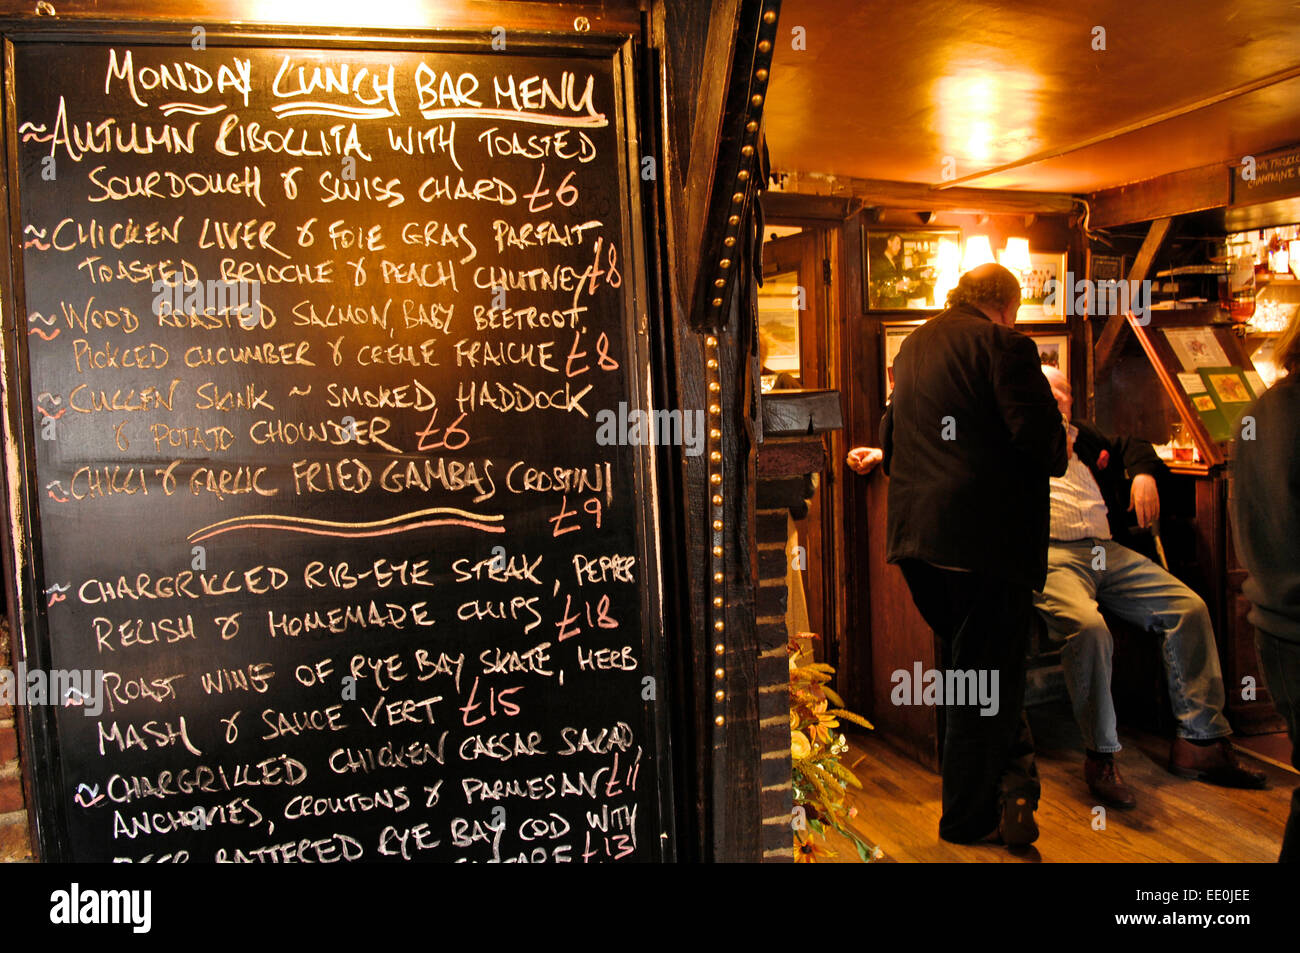 MONDAY LUNCH BAR MENU
~ AUTUMN RIBOLLITA WITH TOASTED
SOURDOUGH & SWISS CHARD £6
~ CHICKEN LIVER & FOIE GRAS PARFAIT
TOASTED BRIOCHE & PEACH CHUTNEY £8
~ WOOD ROASTED SALMON, BABY BEETROOT,
PICKLED CUCUMBER & CREME FRAICHE £8
~ CULLEN SKINK ~ SMOKED HADDOCK
& POTATO CHOWDER £6
~ CHILLI & GARLIC FRIED GAMBAS CROSTINI
£9
~ CHARGRILLED RIB-EYE STEAK, PEPPER
RELISH & HOMEMADE CHIPS £18
~ ROAST WING OF RYE BAY SKATE, HERB
MASH & SAUCE VERT £15
~ CHARGRILLED CHICKEN CAESAR SALAD,
ANCHOVIES, CROUTONS & PARMESAN £11
BEER BATTERED RYE BAY COD WITH
£13
CHAMPAGNE
alamy
alamy
Image ID: EE0JEE
www.alamy.com